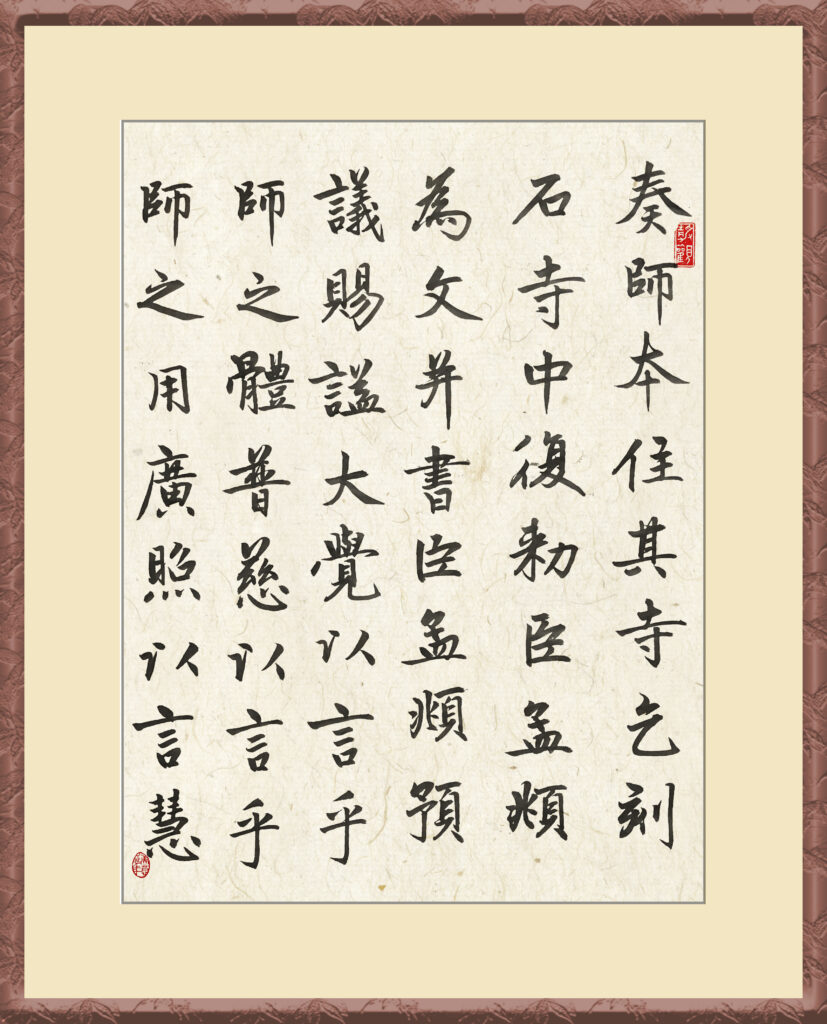 奏師本住其寺乞刻
石寺中復勑臣孟頫
為文并書臣孟頫預
議賜謚大覺以言乎
師之體普慈以言乎
師之用廣照以言慧